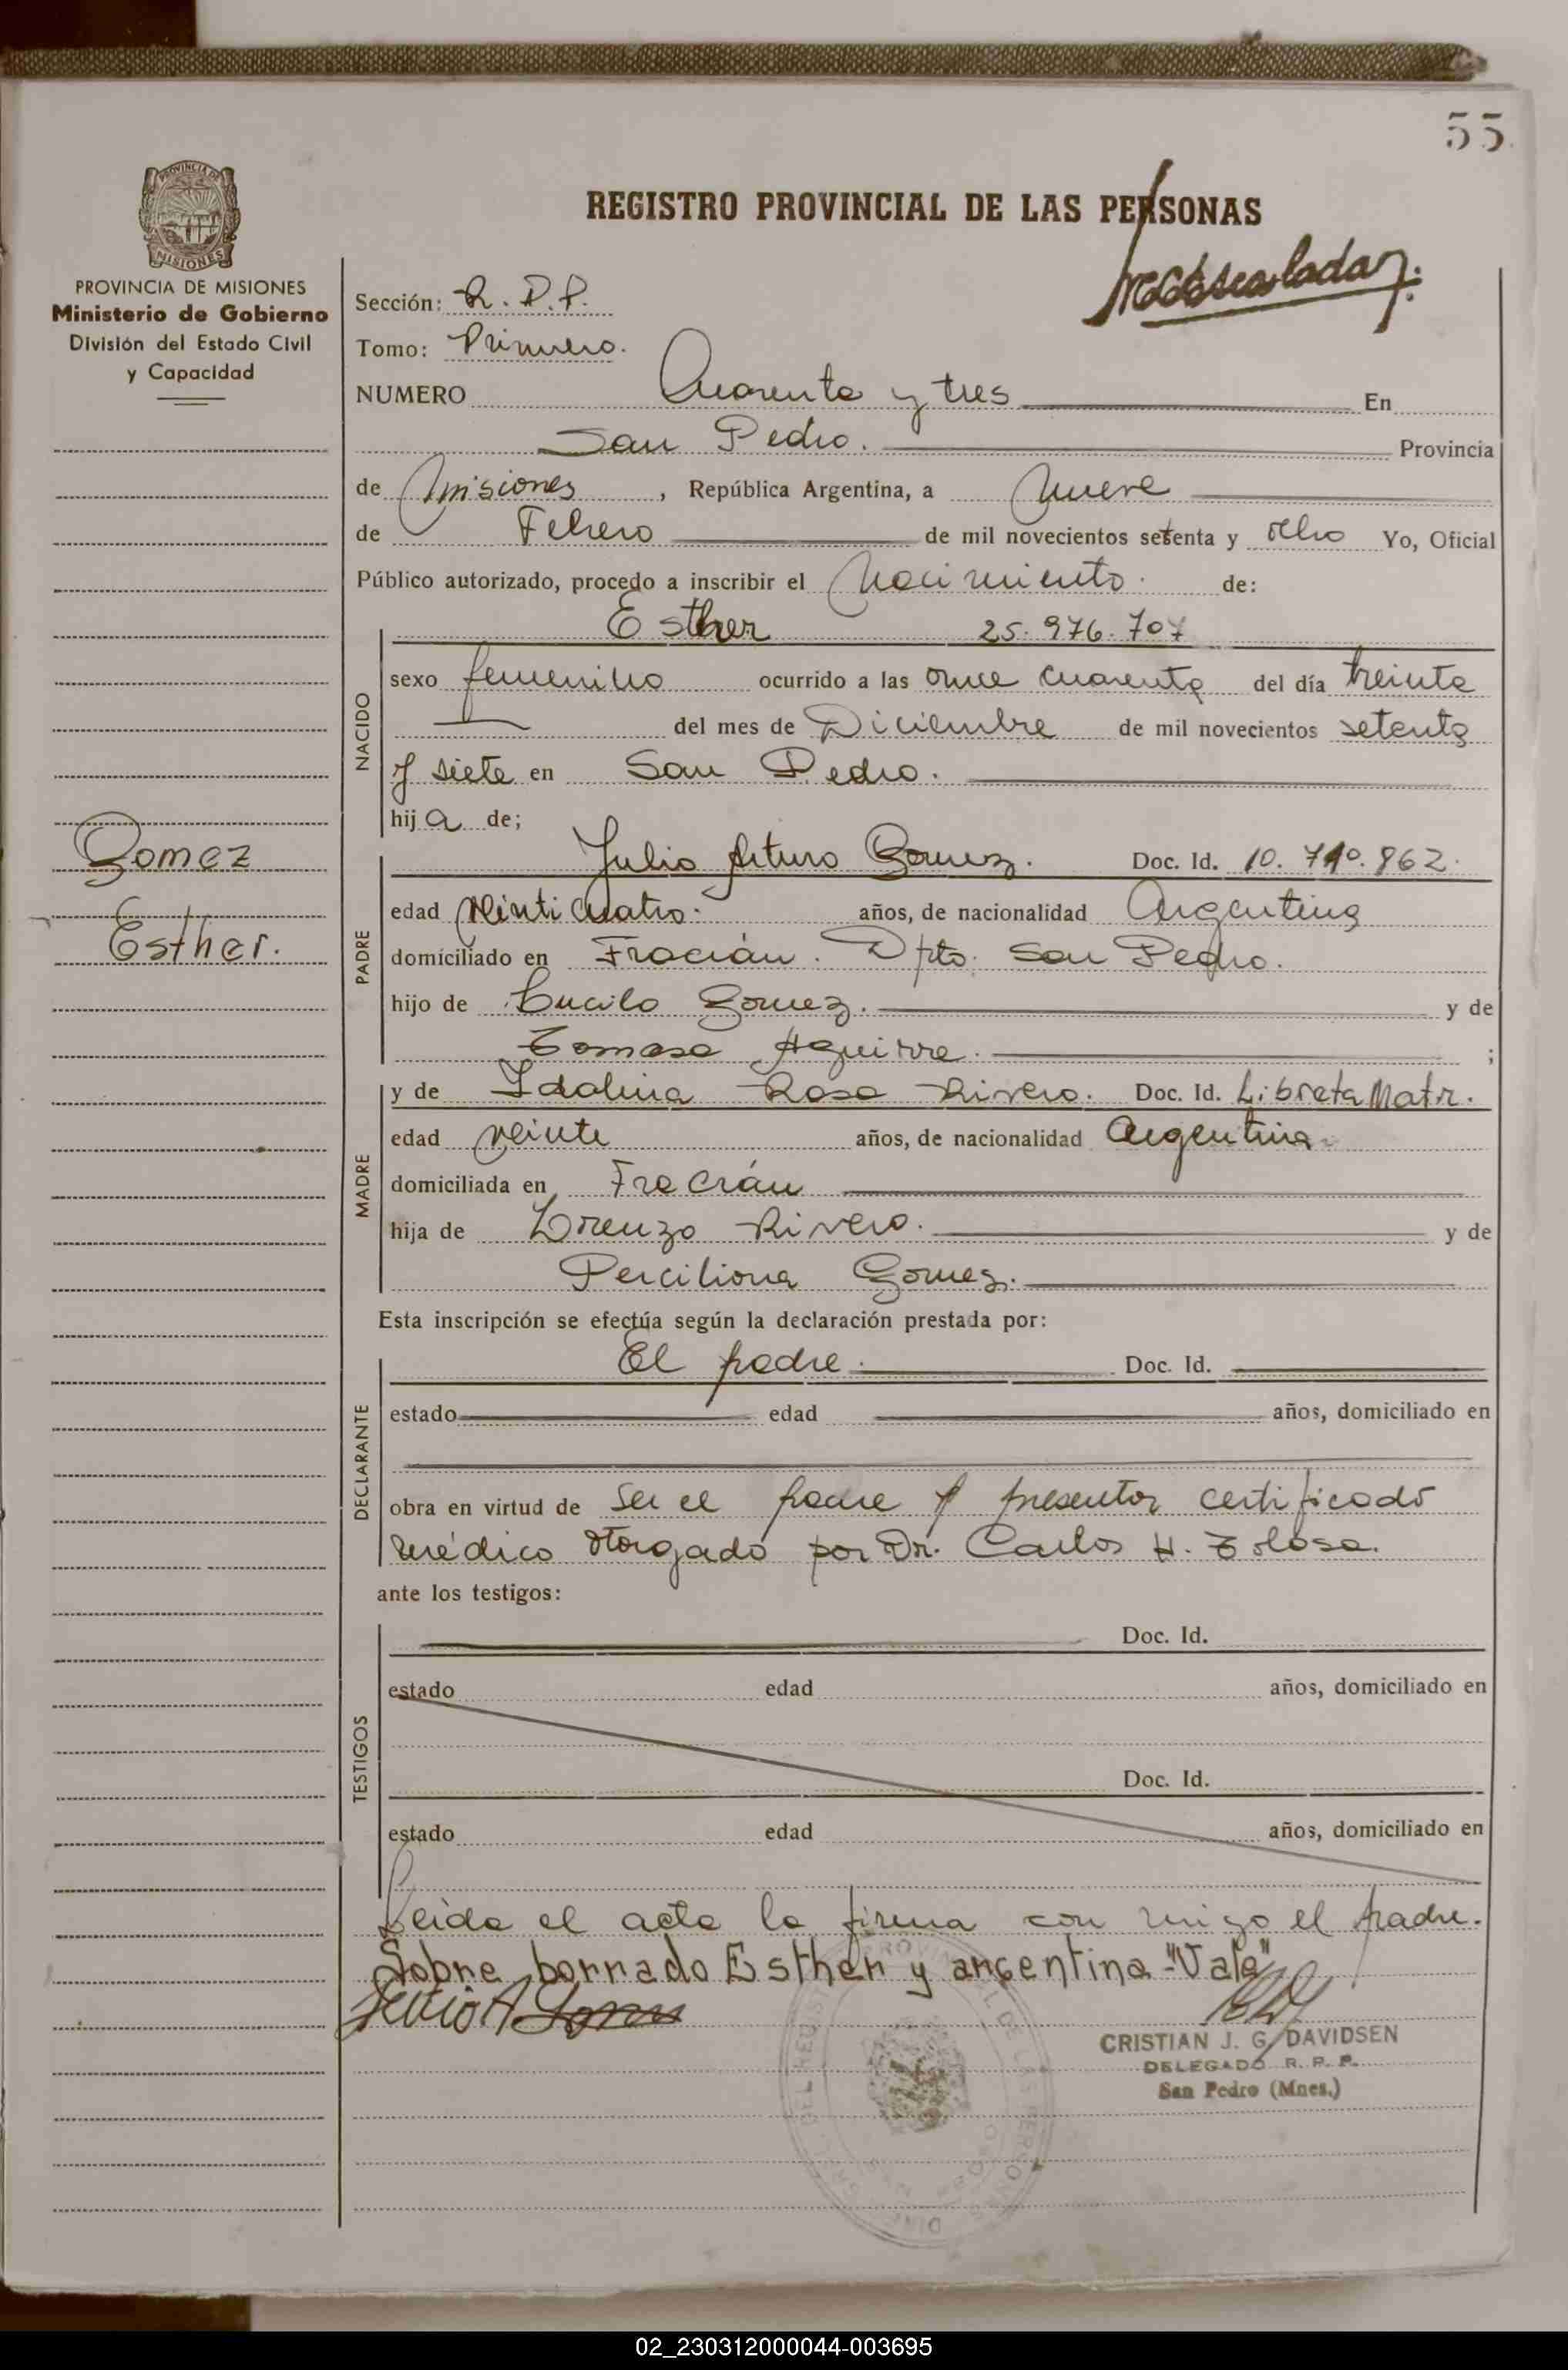 55
PROVINCIA DE MISIONES
PROVINCIA DE MISIONES
Ministerio de Gobierno
División del Estado Civil
y Capacidad
REGISTRO PROVINCIAL DE LAS PERSONAS
Sección: R. P. P.
Tomo: Primero.
NUMERO Cuarenta y tres En
San Pedro. Provincia
de Misiones, República Argentina, a nueve
de Febrero de mil novecientos setenta y ocho Yo, Oficial
Público autorizado, procedo a inscribir el Nacimiento. de:
Esther 25.976.707
NACIDO
sexo femenino ocurrido a las once cuarenta del día treinta
del mes de Diciembre de mil novecientos setenta
y siete en San Pedro.
hija de;
Gomez
Esther.
PADRE
Julio Arturo Gomez. Doc. Id. 10.710.862.
edad veinticuatro. años, de nacionalidad Argentina
domiciliado en Fracrán. Dpto. San Pedro.
hijo de Lucilo Gomez. y de
Tomasa Aguirre. ;
MADRE
y de Idalina Rosa Rivero. Doc. Id. Libreta Matr.
edad veinte años, de nacionalidad Argentina
domiciliada en Fracrán
hija de Lorenzo Rivero. y de
Perciliana Gomez.
Esta inscripción se efectúa según la declaración prestada por:
DECLARANTE
El padre. Doc. Id.
estado edad años, domiciliado en
obra en virtud de ser el padre y presentar certificado
médico otorgado por Dr. Carlos H. Tolosa.
ante los testigos:
TESTIGOS
Doc. Id.
estado edad años, domiciliado en
Doc. Id.
estado edad años, domiciliado en
Leida el acta la firma con migo el padre.
Sobre borrado Esther y argentina "Vale"
CRISTIAN J. G. DAVIDSEN
DELEGADO R. P. P.
San Pedro (Mnes.)
02_230312000044-003695